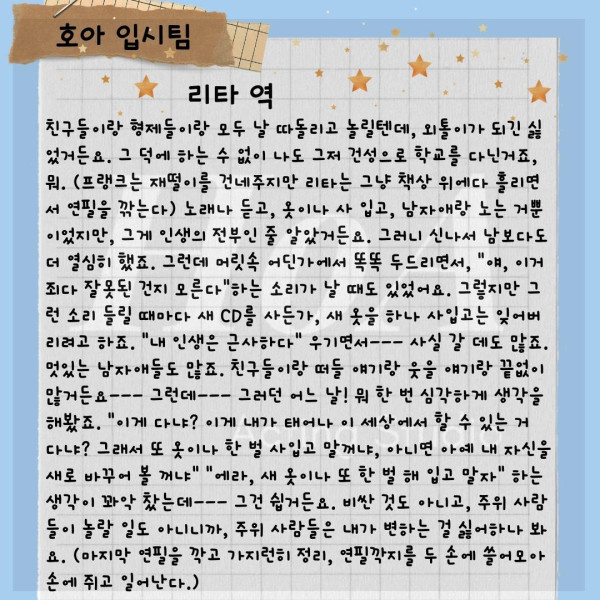 호아 입시팀
리타 역
친구들이랑 형제들이랑 모두 날 따돌리고 놀릴텐데, 외톨이가 되긴 싫
었거든요. 그 덕에 하는 수 없이 나도 그저 건성으로 학교를 다닌거죠,
뭐. (프랭크는 재떨이를 건네주지만 리타는 그냥 책상 위에다 흘리면
서 연필을 깎는다) 노래나 듣고, 옷이나 사 입고, 남자애랑 노는 거뿐
이었지만, 그게 인생의 전부인 줄 알았거든요. 그러니 신나서 남보다도
더 열심히 했죠. 그런데 머릿속 어딘가에서 똑똑 두드리면서, "얘, 이거
죄다 잘못된 건지 모른다"하는 소리가 날 때도 있었어요. 그렇지만 그
런 소리 들릴 때마다 새 CD를 사든가, 새 옷을 하나 사입고는 잊어버
리려고 하죠. "내 인생은 근사하다" 우기면서--- 사실 갈 데도 많죠.
멋있는 남자애들도 많죠. 친구들이랑 떠들 얘기랑 웃을 얘기랑 끝없이
많거든요--- 그런데--- 그러던 어느 날! 뭐 한 번 심각하게 생각을
해봤죠. "이게 다냐? 이게 내가 태어나 이 세상에서 할 수 있는 거
다냐? 그래서 또 옷이나 한 벌 사입고 말꺼냐, 아니면 아예 내 자신을
새로 바꾸어 볼 꺼냐" "에라, 새 옷이나 또 한 벌 해 입고 말자" 하는
생각이 꽈악 찼는데--- 그건 쉽거든요. 비싼 것도 아니고, 주위 사람
들이 놀랄 일도 아니니까, 주위 사람들은 내가 변하는 걸 싫어하나 봐
요. (마지막 연필을 깎고 가지런히 정리, 연필깍지를 두 손에 쓸어모아
손에 쥐고 일어난다.)
HoA
Acting Studio